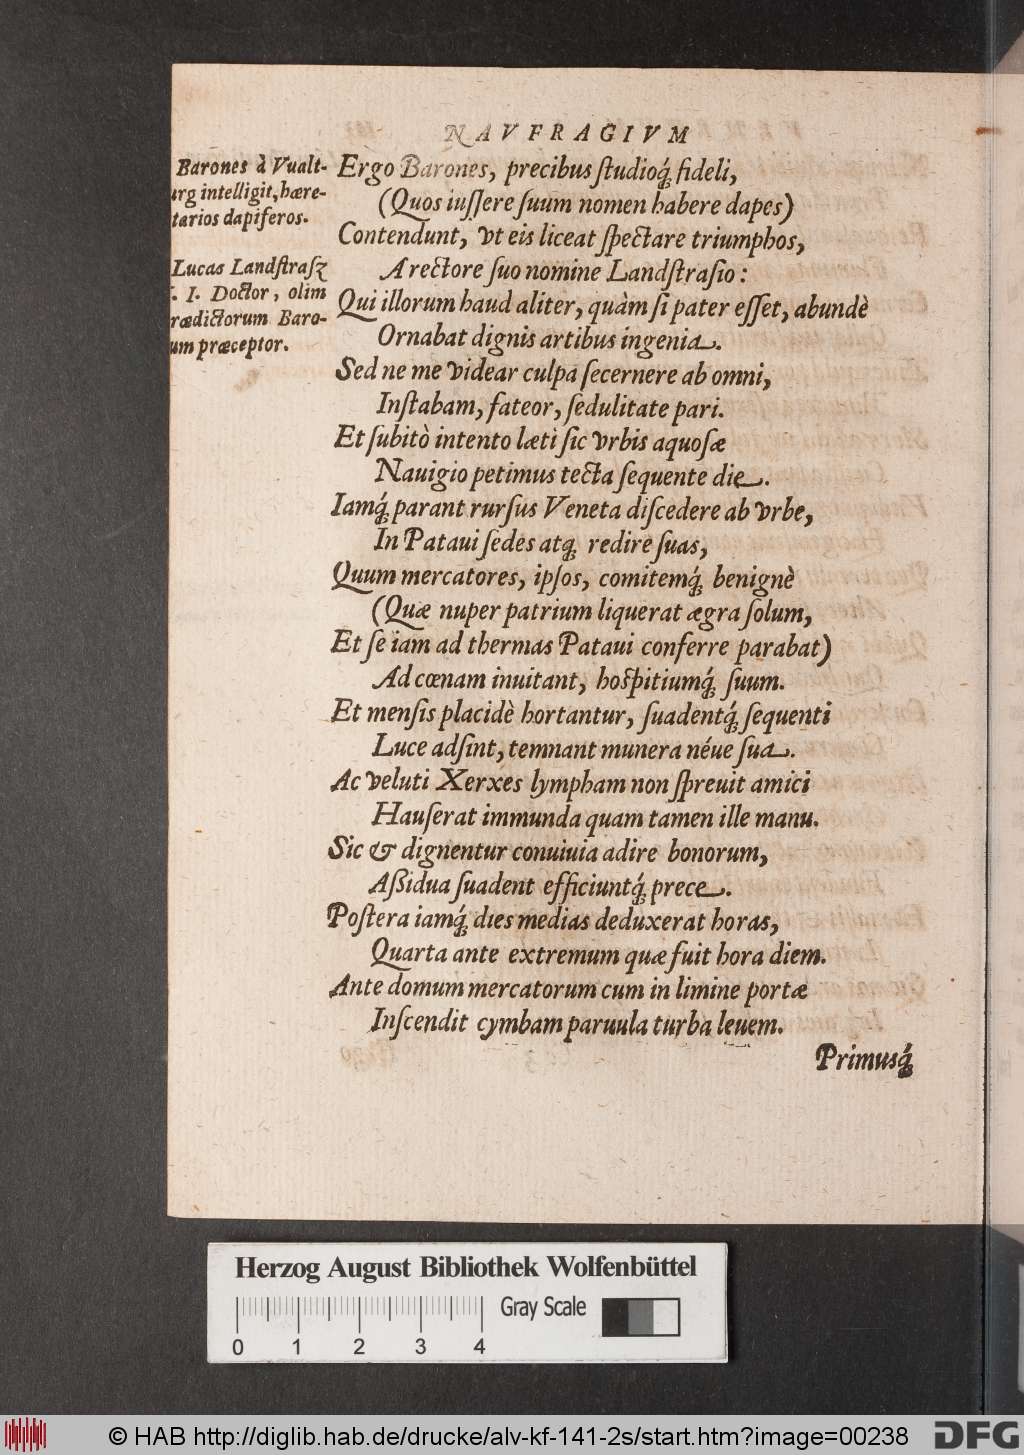 NAVFRAGIVM
Barones à Vualt-
urg intelligit, hære-
tarios dapiferos.
Lucas Landſtraſz
I. Doctor, olim
rædictorum Baro-
um præceptor.
Ergo Barones, precibus ſtudioq́; fideli,
(Quos iuſſere ſuum nomen habere dapes)
Contendunt, vt eis liceat ſpectare triumphos,
A rectore ſuo nomine Landſtraſio:
Qui illorum haud aliter, quàm ſi pater eſſet, abundè
Ornabat dignis artibus ingenia.
Sed ne me videar culpa ſecernere ab omni,
Inſtabam, fateor, ſedulitate pari.
Et ſubitò intento læti ſic vrbis aquoſæ
Nauigio petimus tecta ſequente die.
Iamq́; parant rurſus Veneta diſcedere ab vrbe,
In Pataui ſedes atq; redire ſuas,
Quum mercatores, ipſos, comitemq́; benignè
(Quæ nuper patrium liquerat ægra ſolum,
Et ſe iam ad thermas Pataui conferre parabat)
Ad cœnam inuitant, hoſpitiumq́; ſuum.
Et menſis placidè hortantur, ſuadentq́; ſequenti
Luce adſint, temnant munera néue ſua.
Ac veluti Xerxes lympham non ſpreuit amici
Hauſerat immunda quam tamen ille manu.
Sic & dignentur conuiuia adire bonorum,
Aßidua ſuadent efficiuntq́; prece.
Poſtera iamq́; dies medias deduxerat horas,
Quarta ante extremum quæ fuit hora diem.
Ante domum mercatorum cum in limine portæ
Inſcendit cymbam paruula turba leuem.
Primusq́;
Herzog August Bibliothek Wolfenbüttel
Gray Scale
0 1 2 3 4
© HAB http://diglib.hab.de/drucke/alv-kf-141-2s/start.htm?image=00238
DFG